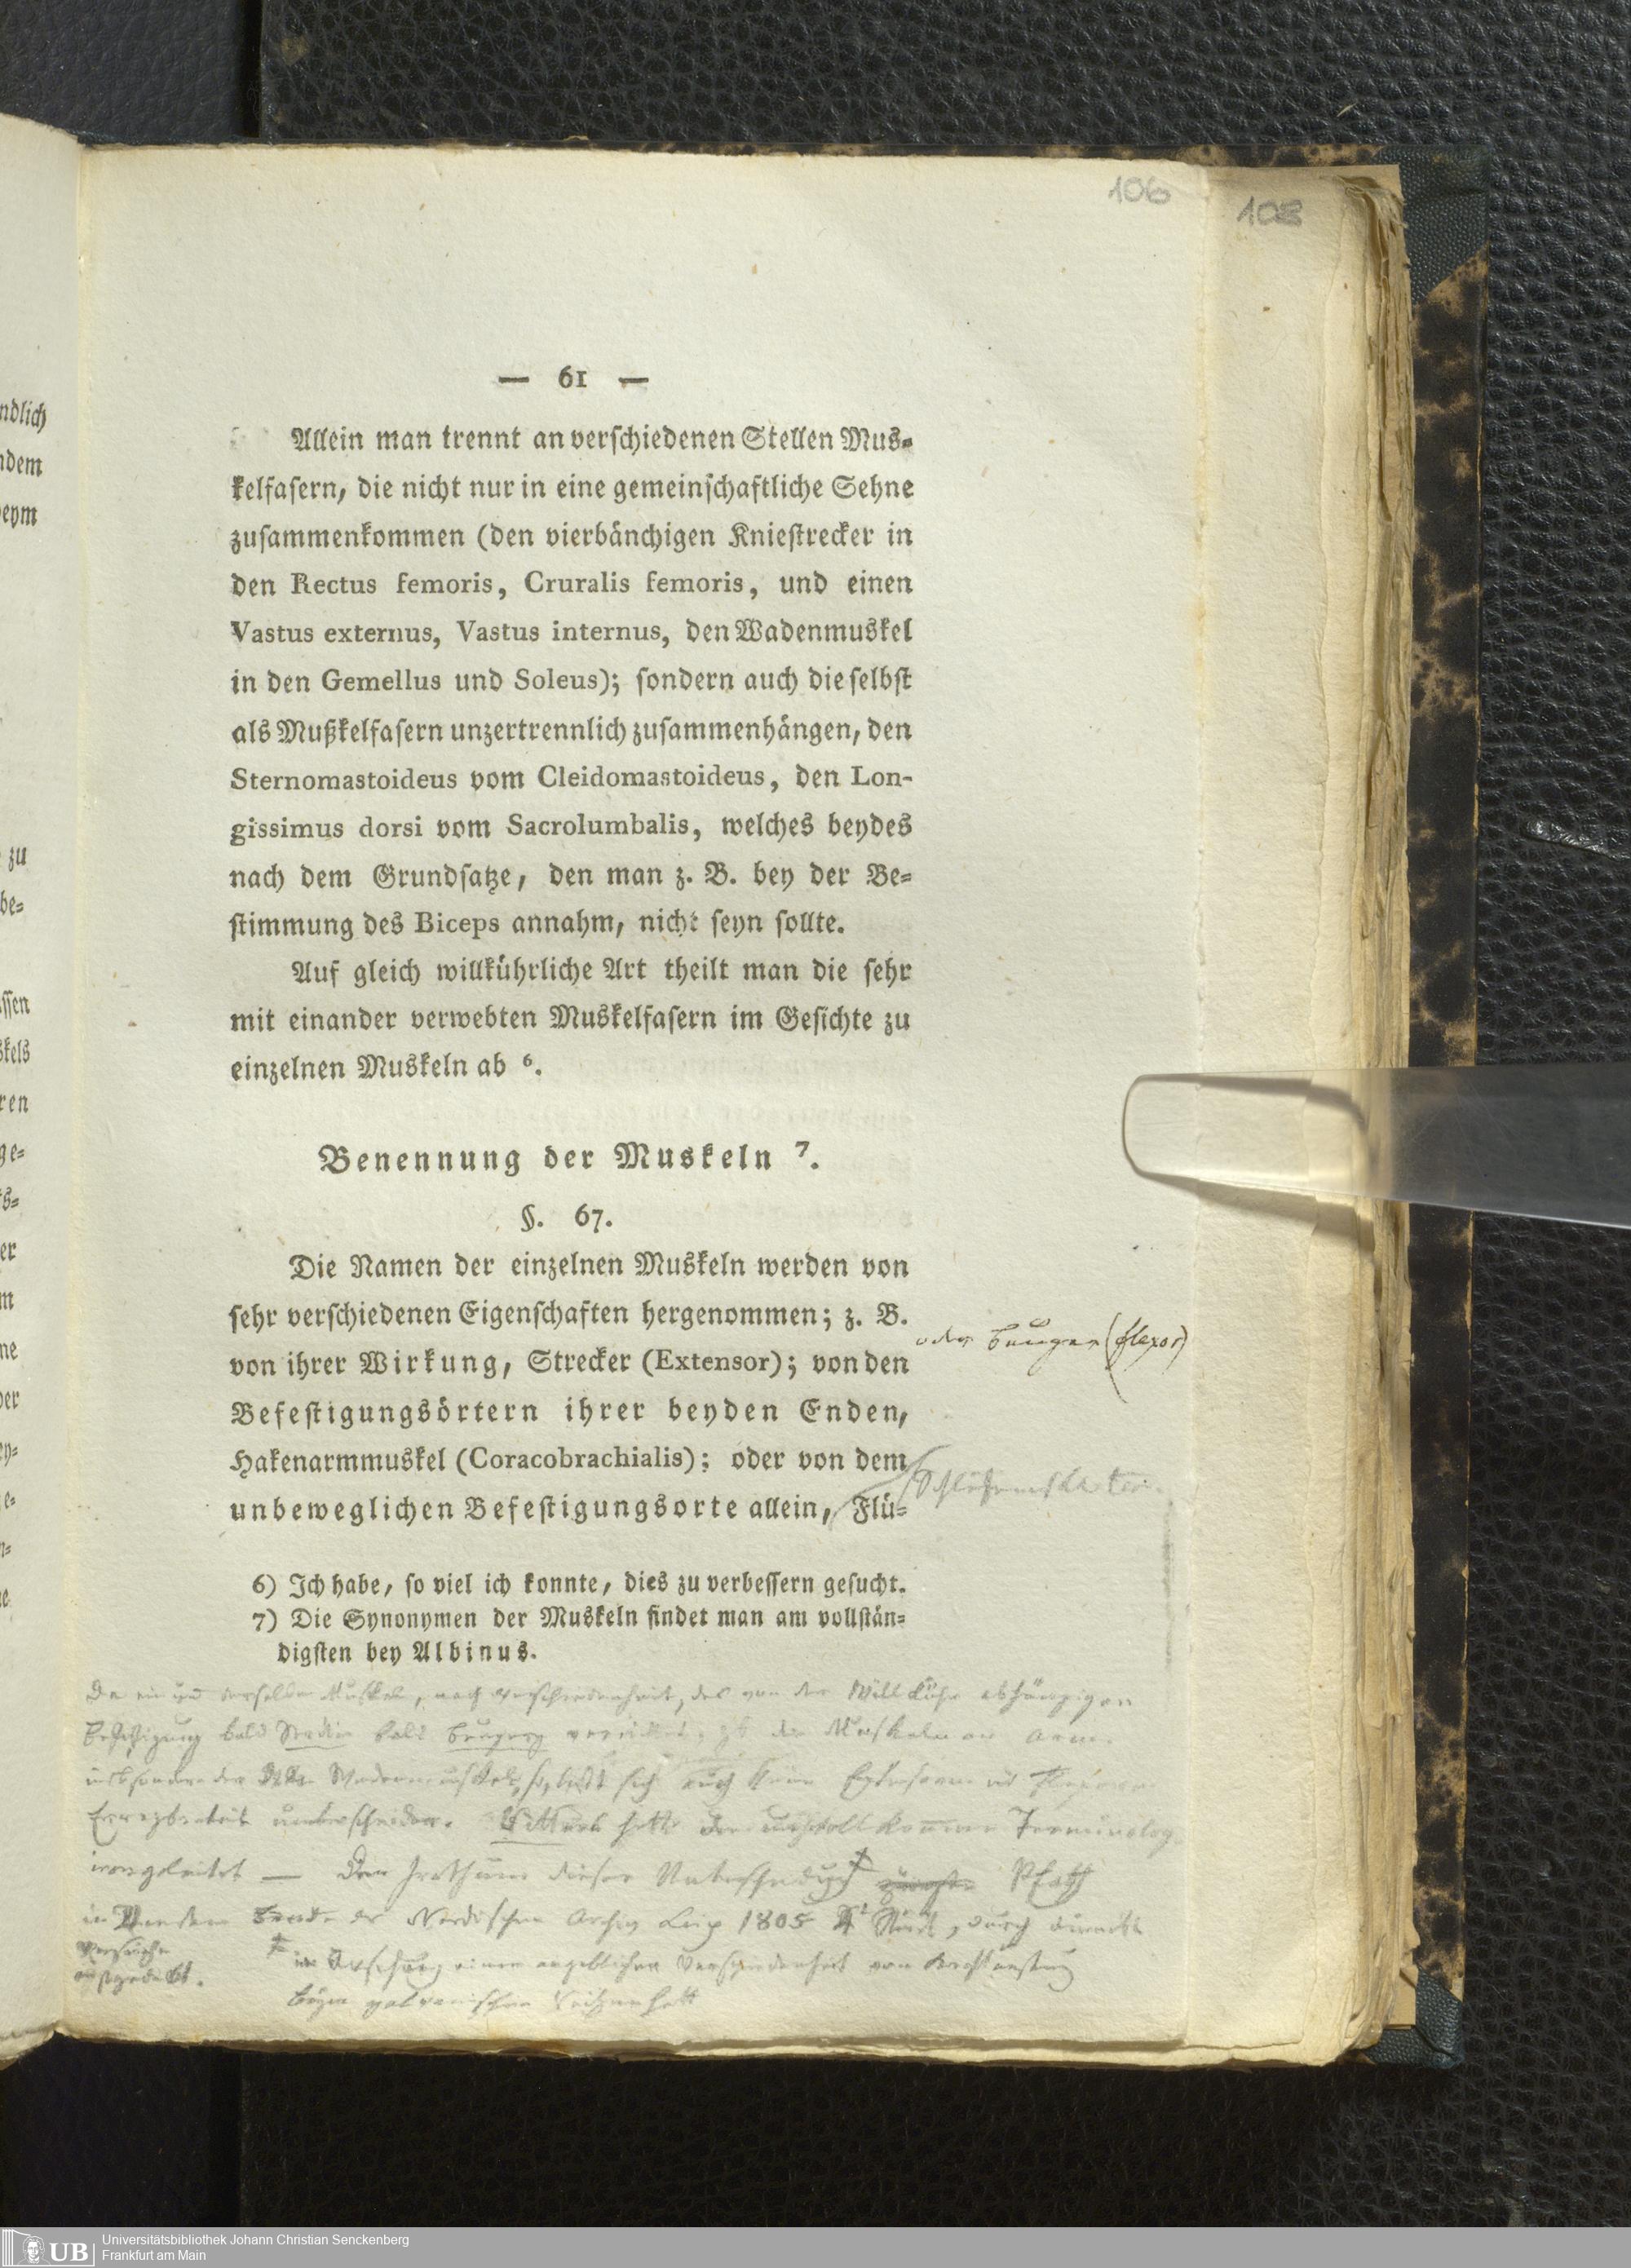 106
108
— 61 —
Allein man trennt an verschiedenen Stellen Mus-
kelfasern, die nicht nur in eine gemeinschaftliche Sehne
zusammenkommen (den vierbänchigen Kniestrecker in
den Rectus femoris, Cruralis femoris, und einen
Vastus externus, Vastus internus, den Wadenmuskel
in den Gemellus und Soleus); sondern auch die selbst
als Mußkelfasern unzertrennlich zusammenhängen, den
Sternomastoideus vom Cleidomastoideus, den Lon-
gissimus dorsi vom Sacrolumbalis, welches beydes
nach dem Grundsatze, den man z. B. bey der Be-
stimmung des Biceps annahm, nicht seyn sollte.
Auf gleich willkührliche Art theilt man die sehr
mit einander verwebten Muskelfasern im Gesichte zu
einzelnen Muskeln ab ⁶.
Benennung der Muskeln ⁷.
§. 67.
Die Namen der einzelnen Muskeln werden von
sehr verschiedenen Eigenschaften hergenommen; z. B.
oder Beuger (flexor)
von ihrer Wirkung, Strecker (Extensor); von den
Befestigungsörtern ihrer beyden Enden,
Hakenarmmuskel (Coracobrachialis); oder von dem
unbeweglichen Befestigungsorte allein, Flü-
6) Ich habe, so viel ich konnte, dies zu verbessern gesucht.
7) Die Synonymen der Muskeln findet man am vollstän-
digsten bey Albinus.
Da ein und derselbe Muskel, nach Verschiedenheit, der von der Willkühr abhängigen
Befestigung bald bald der Muskeln am Arm
insbesondere der Wadenmuskel, so läßt sich auch keine
Erregbarkeit unterscheiden. Rittern hatte die unvollkommne Terminolog
irregeleitet — Den Irrthum dieser Pfaff
im Bande des Nordischen Archivs Leipz 1805 Stück, durch
Versuche
aufgedeckt.
in einer angeblichen Verschiedenheit von
beym galvanischen
Universitätsbibliothek Johann Christian Senckenberg
Frankfurt am Main
UB